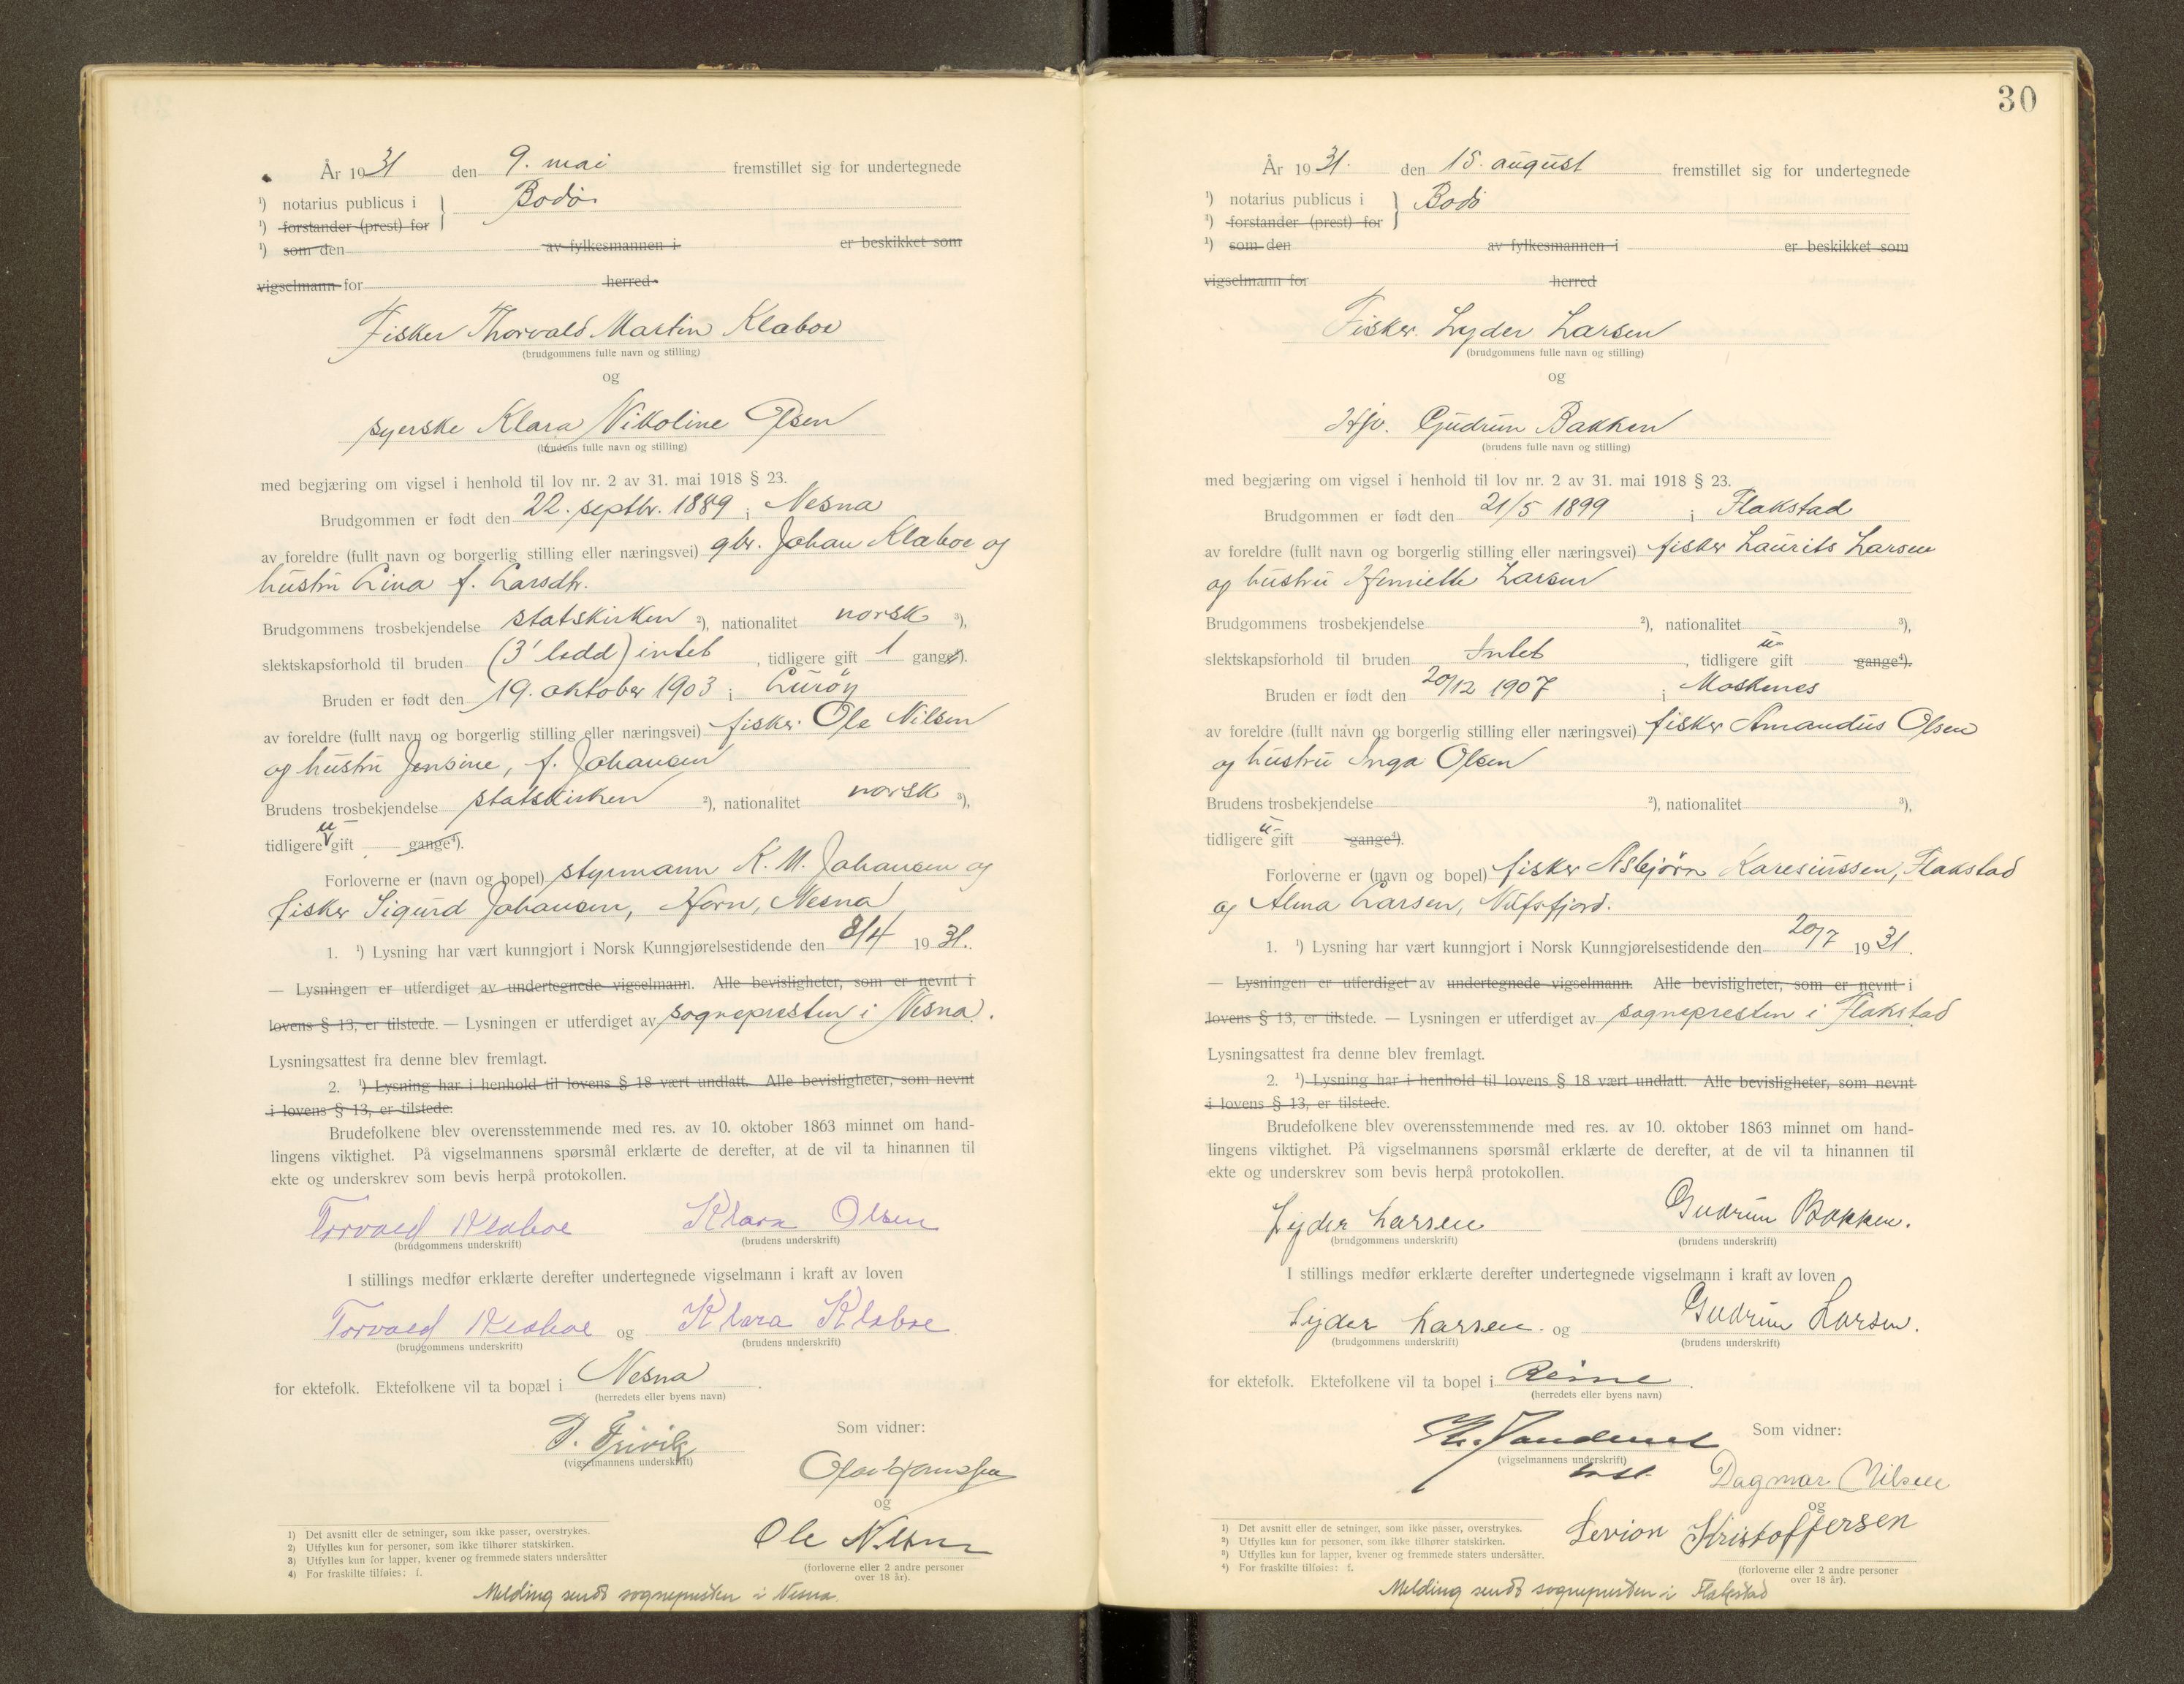 År 1931 den 9. mai fremstillet sig for undertegnede
¹) notarius publicus i } Bodø
¹) forstander (prest) for
¹) som den av fylkesmannen i er beskikket som
vigselmann for herred
Fisker Thorvald Martin Klaboe
(brudgommens fulle navn og stilling)
og
syerske Klara Nikoline Olsen
(brudens fulle navn og stilling)
med begjæring om vigsel i henhold til lov nr. 2 av 31. mai 1918 § 23.
Brudgommen er født den 22. septbr. 1889 i Nesna
av foreldre (fullt navn og borgerlig stilling eller næringsvei) gbr. Johan Klaboe og
hustru Lina f. Larsdtr.
Brudgommens trosbekjendelse statskirken ²), nationalitet norsk ³),
slektskapsforhold til bruden (3' ledd) intet, tidligere gift 1 gange⁴).
Bruden er født den 19. oktober 1903 i Lurøy
av foreldre (fullt navn og borgerlig stilling eller næringsvei) fisker Ole Nilsen
og hustru Jensine, f. Johansen
Brudens trosbekjendelse statskirken ²), nationalitet norsk ³),
tidligere u- gift gange⁴).
Forloverne er (navn og bopel) styrmann K. M. Johansen og
fisker Sigurd Johansen, Horn, Nesna
1. ¹) Lysning har vært kunngjort i Norsk Kunngjørelsestidende den 8/4 1931.
— Lysningen er utferdiget av undertegnede vigselmann. Alle bevisligheter, som er nevnt i
lovens § 13, er tilstede. — Lysningen er utferdiget av sognepresten i Nesna.
Lysningsattest fra denne blev fremlagt.
2. ¹) Lysning har i henhold til lovens § 18 vært undlatt. Alle bevisligheter, som nevnt
i lovens § 13, er tilstede.
Brudefolkene blev overensstemmende med res. av 10. oktober 1863 minnet om hand-
lingens viktighet. På vigselmannens spørsmål erklærte de derefter, at de vil ta hinannen til
ekte og underskrev som bevis herpå protokollen.
Torvald Klaboe Klara Olsen
(brudgommens underskrift) (brudens underskrift)
I stillings medfør erklærte derefter undertegnede vigselmann i kraft av loven
Torvald Klaboe og Klara Klaboe
(brudgommens underskrift) (brudens underskrift)
for ektefolk. Ektefolkene vil ta bopæl i Nesna.
(herredets eller byens navn)
Som vidner:
(vigselmannens underskrift)
og
Ole Nilsen
(forloverne eller 2 andre personer
over 18 år).
1) Det avsnitt eller de setninger, som ikke passer, overstrykes.
2) Utfylles kun for personer, som ikke tilhører statskirken.
3) Utfylles kun for lapper, kvener og fremmede staters undersåtter
4) For fraskilte tilføies: f.
Melding sendt sognepresten i Nesna.
30
År 1931. den 15. august fremstillet sig for undertegnede
¹) notarius publicus i } Bodø
¹) forstander (prest) for
¹) som den av fylkesmannen i er beskikket som
vigselmann for herred
Fisker Lyder Larsen
(brudgommens fulle navn og stilling)
og
Gudrun Bakken
(brudens fulle navn og stilling)
med begjæring om vigsel i henhold til lov nr. 2 av 31. mai 1918 § 23.
Brudgommen er født den 21/5 1899 i Flakstad
av foreldre (fullt navn og borgerlig stilling eller næringsvei) fisker Laurits Larsen
og hustru Henriette Larsen
Brudgommens trosbekjendelse ²), nationalitet ³),
slektskapsforhold til bruden Intet, tidligere u- gift gange⁴).
Bruden er født den 20/12 1907 i Moskenes
av foreldre (fullt navn og borgerlig stilling eller næringsvei) fisker Amandus Olsen
og hustru Inga Olsen
Brudens trosbekjendelse ²), nationalitet ³),
tidligere u- gift gange⁴).
Forloverne er (navn og bopel) fisker Asbjørn Karesiussen, Flakstad
og Alma Larsen, Nufsfjord.
1. ¹) Lysning har vært kunngjort i Norsk Kunngjørelsestidende den 20/7 1931.
— Lysningen er utferdiget av undertegnede vigselmann. Alle bevisligheter, som er nevnt i
lovens § 13, er tilstede. — Lysningen er utferdiget av sognepresten i Flakstad
Lysningsattest fra denne blev fremlagt.
2. ¹) Lysning har i henhold til lovens § 18 vært undlatt. Alle bevisligheter, som nevnt
i lovens § 13, er tilstede.
Brudefolkene blev overensstemmende med res. av 10. oktober 1863 minnet om hand-
lingens viktighet. På vigselmannens spørsmål erklærte de derefter, at de vil ta hinannen til
ekte og underskrev som bevis herpå protokollen.
Lyder Larsen Gudrun Bakken.
(brudgommens underskrift) (brudens underskrift)
I stillings medfør erklærte derefter undertegnede vigselmann i kraft av loven
Lyder Larsen. og Gudrun Larsen.
(brudgommens underskrift) (brudens underskrift)
for ektefolk. Ektefolkene vil ta bopel i Reine.
(herredets eller byens navn)
Som vidner:
(vigselmannens underskrift)
Dagmar Nilsen
og
Levion Kristoffersen
(forloverne eller 2 andre personer
over 18 år).
1) Det avsnitt eller de setninger, som ikke passer, overstrykes.
2) Utfylles kun for personer, som ikke tilhører statskirken.
3) Utfylles kun for lapper, kvener og fremmede staters undersåtter.
4) For fraskilte tilføies: f.
Melding sendt sognepresten i Flakstad